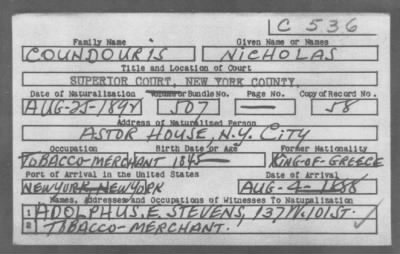 C 536
Family Name Given Name or Names
COUNDOURIS NICHOLAS
Title and Location of Court
SUPERIOR COURT, NEW YORK COUNTY.
Date of Naturalization Volume or Bundle No. Page No. Copy of Record No.
AUG-25-1892 507 — 58
Address of Naturalized Person
ASTOR HOUSE, N.Y. CITY
Occupation Birth Date or Age Former Nationality
TOBACCO-MERCHANT 1845 KING-OF-GREECE
Port of Arrival in the United States Date of Arrival
NEWYORK, NEWYORK AUG-4-1888
Names, Addresses and Occupations of Witnesses To Naturalization
1 ADOLPHUS. E. STEVENS, 137 W. 101 ST.
2 TOBACCO-MERCHANT.